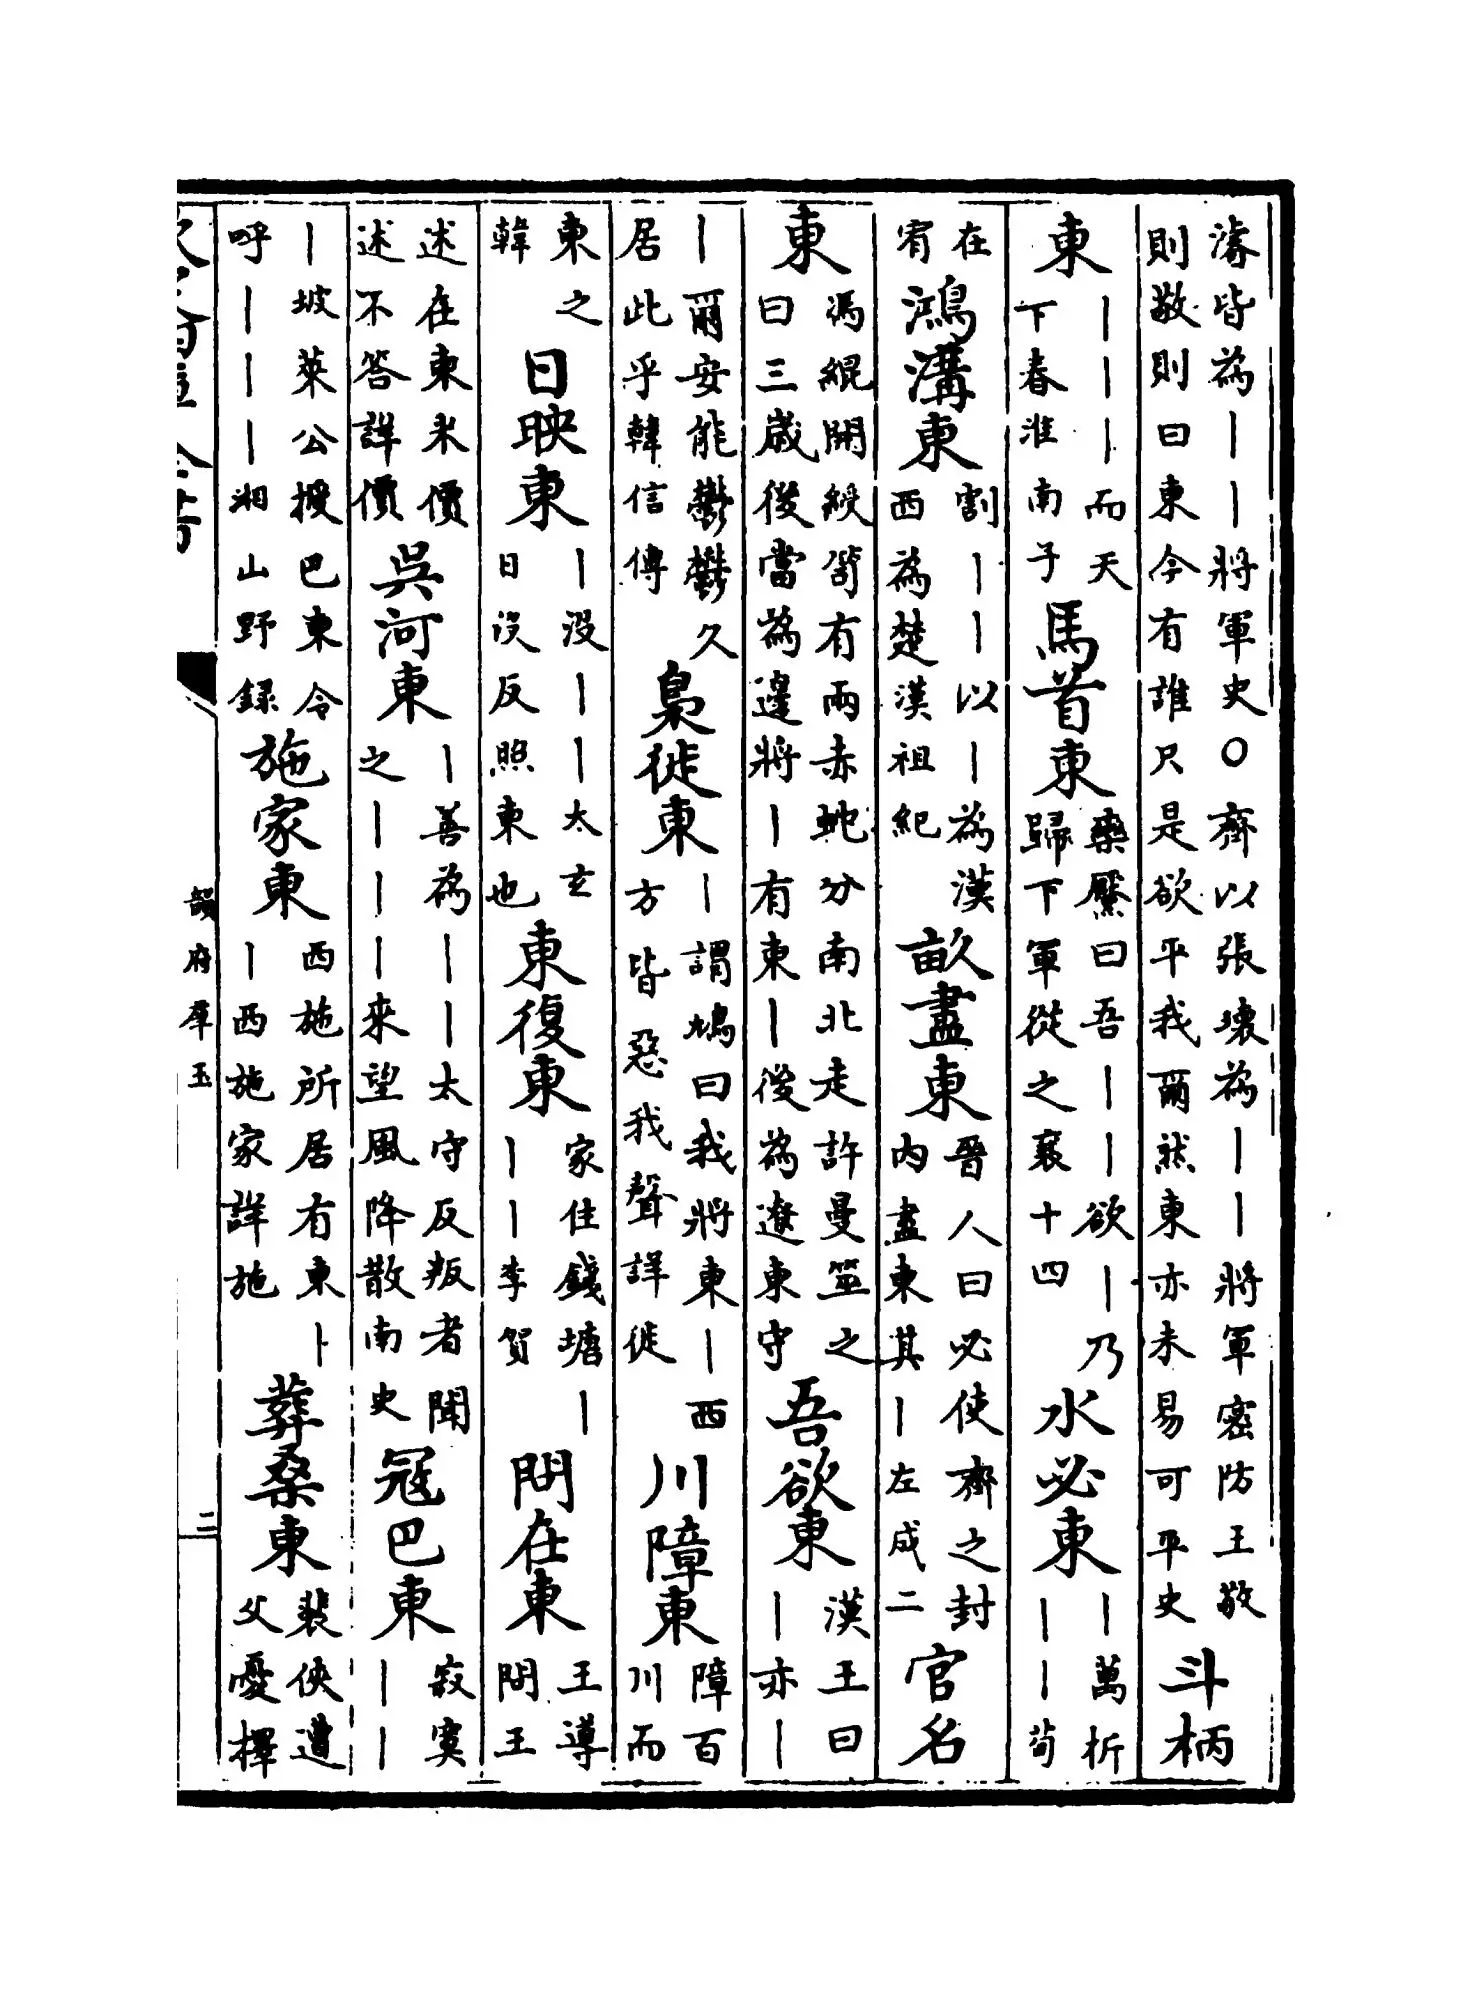 濬皆為丨丨將軍史○齊以張瓌為丨丨將軍密防王敬
則敬則曰東今有誰只是欲平我爾然東亦未易可平史
斗柄
東
丨丨丨丨而天
下春淮南子
馬首東
欒黶曰吾丨丨欲丨乃
歸下軍從之襄十四
水必東
丨萬折
丨丨荀
在
宥
鴻溝東
割丨丨以丨為漢
西為楚漢祖紀
畝盡東
晉人曰必使齊之封
內盡東其丨左成二
官名
東
馮緄開綬笥有兩赤蛇分南北走許曼筮之
曰三歲後當為邊將丨有東丨後為遼東守
吾欲東
漢王曰
丨亦丨
丨爾安能鬱鬱久
居此乎韓信傳
梟徙東
丨謂鳩曰我將東丨西
方皆惡我聲詳徙
川障東
障百
川而
東之
韓
日映東
丨没丨丨太玄
日没反照東也
東復東
家住錢塘丨
丨丨李賀
問在東
王導
問王
述在東米價
述不答詳價
吳河東
丨善為丨丨太守反叛者聞
之丨丨丨來望風降散南史
冦巴東
寂寞
丨丨
丨坡萊公授巴東令
呼丨丨丨湘山野録
施家東
西施所居有東丨
丨西施家詳施
葬桑東
裴俠遭
父憂擇
韻府羣玉
二